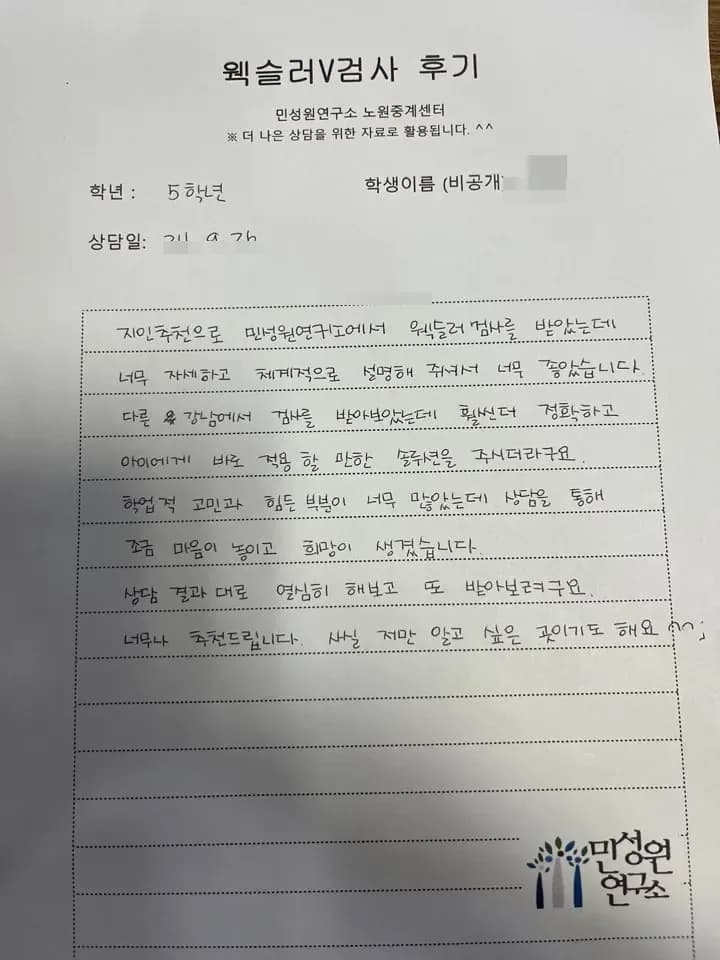 웩슬러V검사 후기
민성원연구소 노원중계센터
※ 더 나은 상담을 위한 자료로 활용됩니다. ^^
학년 : 5학년 학생이름 (비공개)
상담일:
지인추천으로 민성원연구소에서 웩슬러검사를 받았는데
너무 자세하고 체계적으로 설명해 주셔서 너무 좋았습니다
다른 강남에서 검사를 받아보았는데 훨씬더 정확하고
아이에게 바로 적용 할 만한 솔루션을 주시더라구요.
학업적 고민과 힘든 부분이 너무 많았는데 상담을 통해
조금 마음이 놓이고 희망이 생겼습니다.
상담 결과대로 열심히 해보고 또 받아보려구요.
너무나 추천드립니다. 사실 저만 알고 싶은 곳이기도 해요 ^^;
민성원
연구소